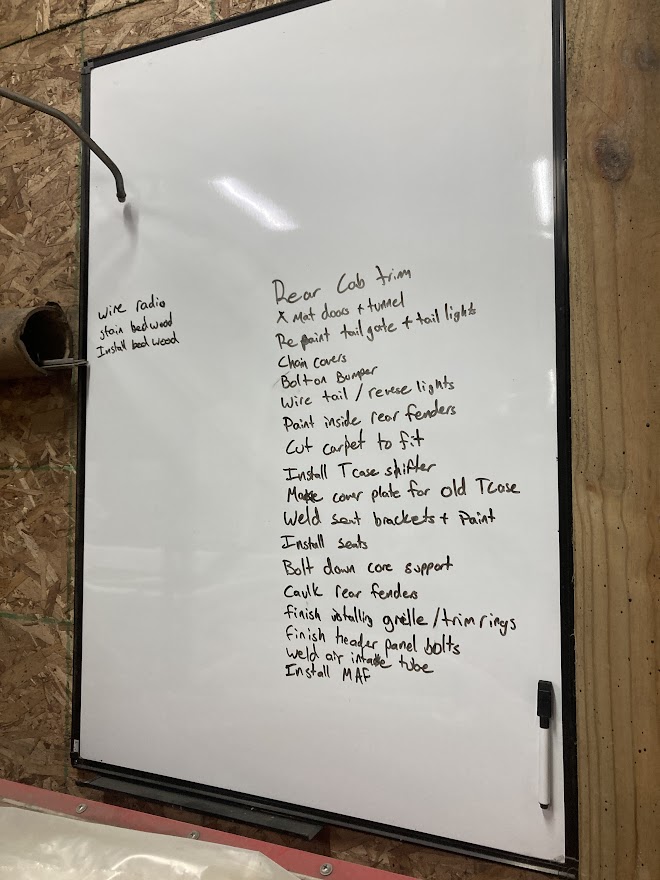 wire radio
stain bed wood
Install bed wood
Rear Cab trim
X mat doors + tunnel
Repaint tailgate + tail lights
Chain covers
Bolt on Bumper
Wire tail / revese lights
Paint inside rear fenders
Cut carpet to fit
Install Tcase shifter
Make cover plate for old Tcase
Weld seat brackets + Paint
Install seats
Bolt down core support
Caulk rear fenders
finish installing grille / trim rings
finish header panel bolts
weld air intake tube
Install MAF